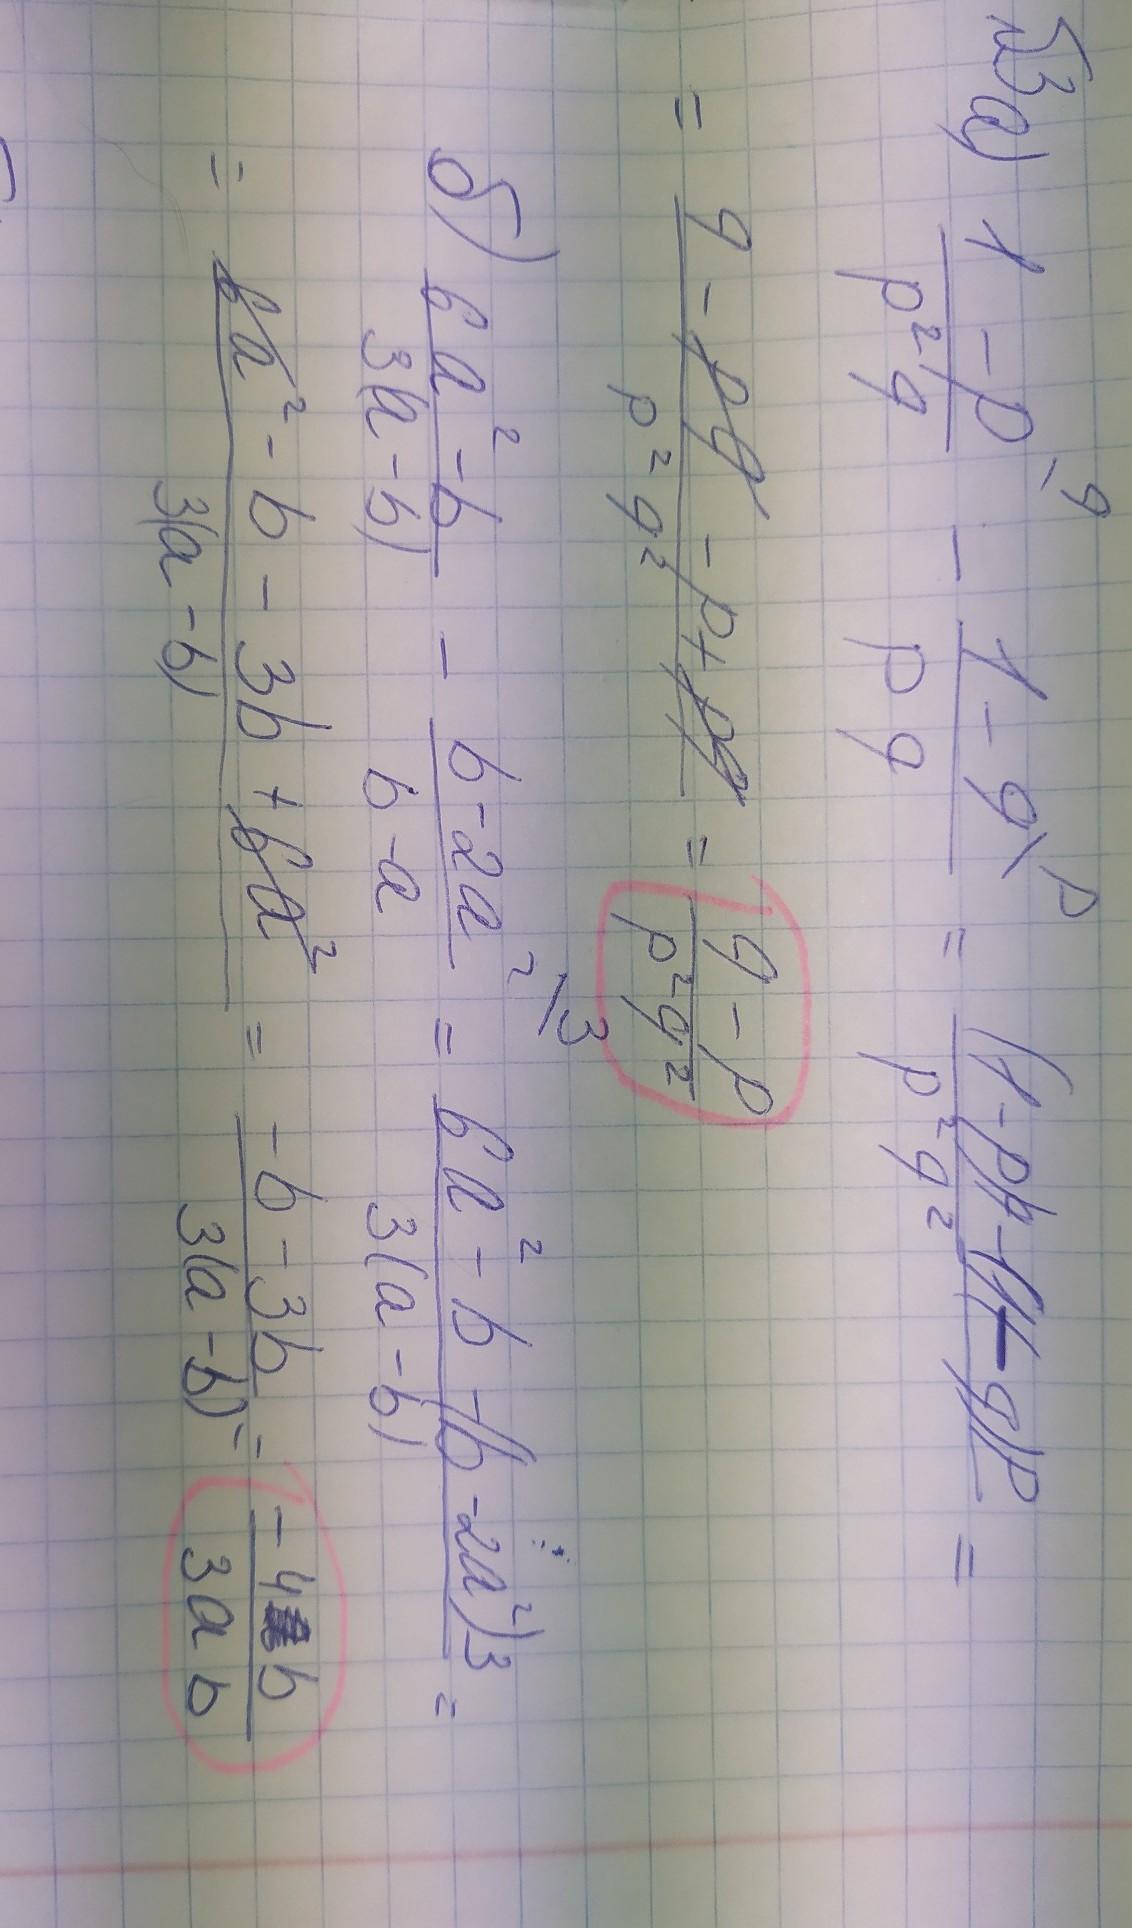 №3 а) (1 - p^\q)/(p²q) - (1 - q^\p)/(pq) = ((1 - p)q - (1 - q)p)/(p²q²) =
= (q - pq - p + pq)/(p²q²) = (q - p)/(p²q²)
б) (6a² - b)/(3(a - b)) - (b - 2a²^\3)/(b - a) = (6a² - b - (b - 2a²)3)/(3(a - b)) =
= (6a² - b - 3b + 6a²)/(3(a - b)) = (-b - 3b)/(3(a - b)) = (-4b)/(3ab)